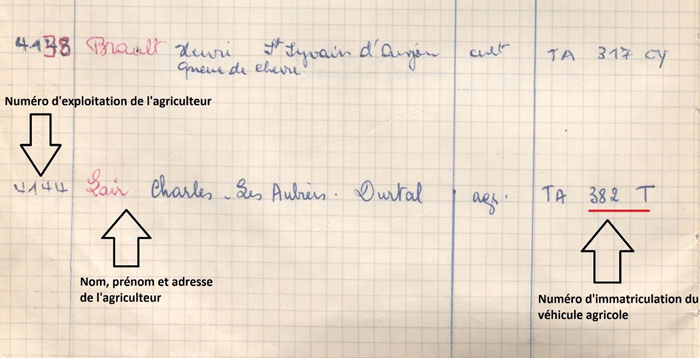 4138 Brault Henri St Sylvain d'Anjou cult TA 317 CY
Queue de chevre
Numéro d'exploitation de l'agriculteur
4144 Lair Charles - Les Aubiers - Durtal agr. TA 382 T
Nom, prénom et adresse
de l'agriculteur
Numéro d'immatriculation du
véhicule agricole